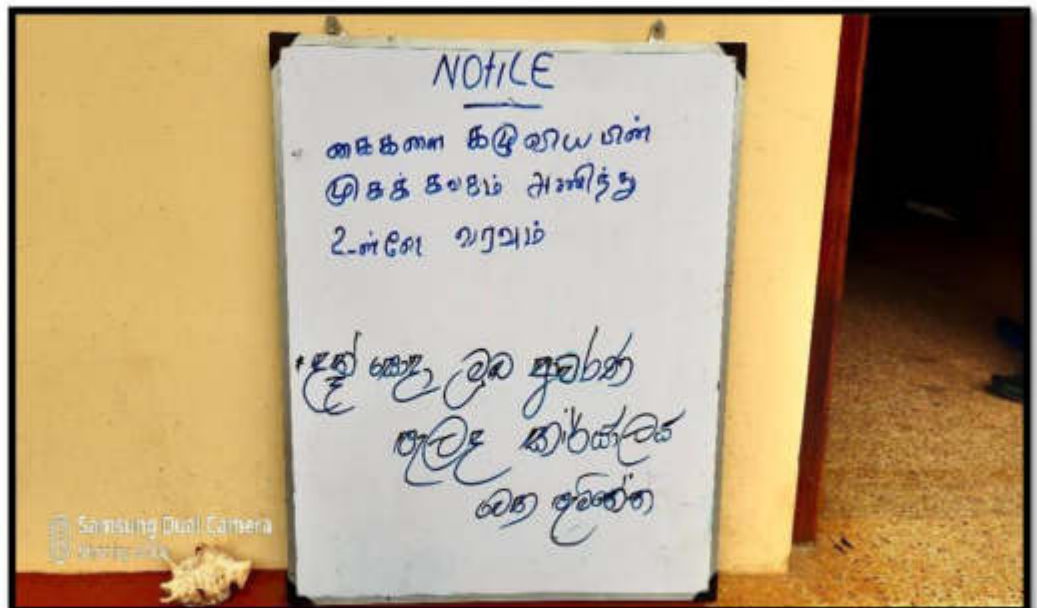 NOtICE
கைகளை கழுவிய பின்
முகக் கவசம் அணிந்து
உள்ளே வரவும்
* දෑත් සෝදා මුඛ ආවරණ
පැලද කාර්යාලය
වෙත පැමිණෙන්න
Samsung Dual Camera